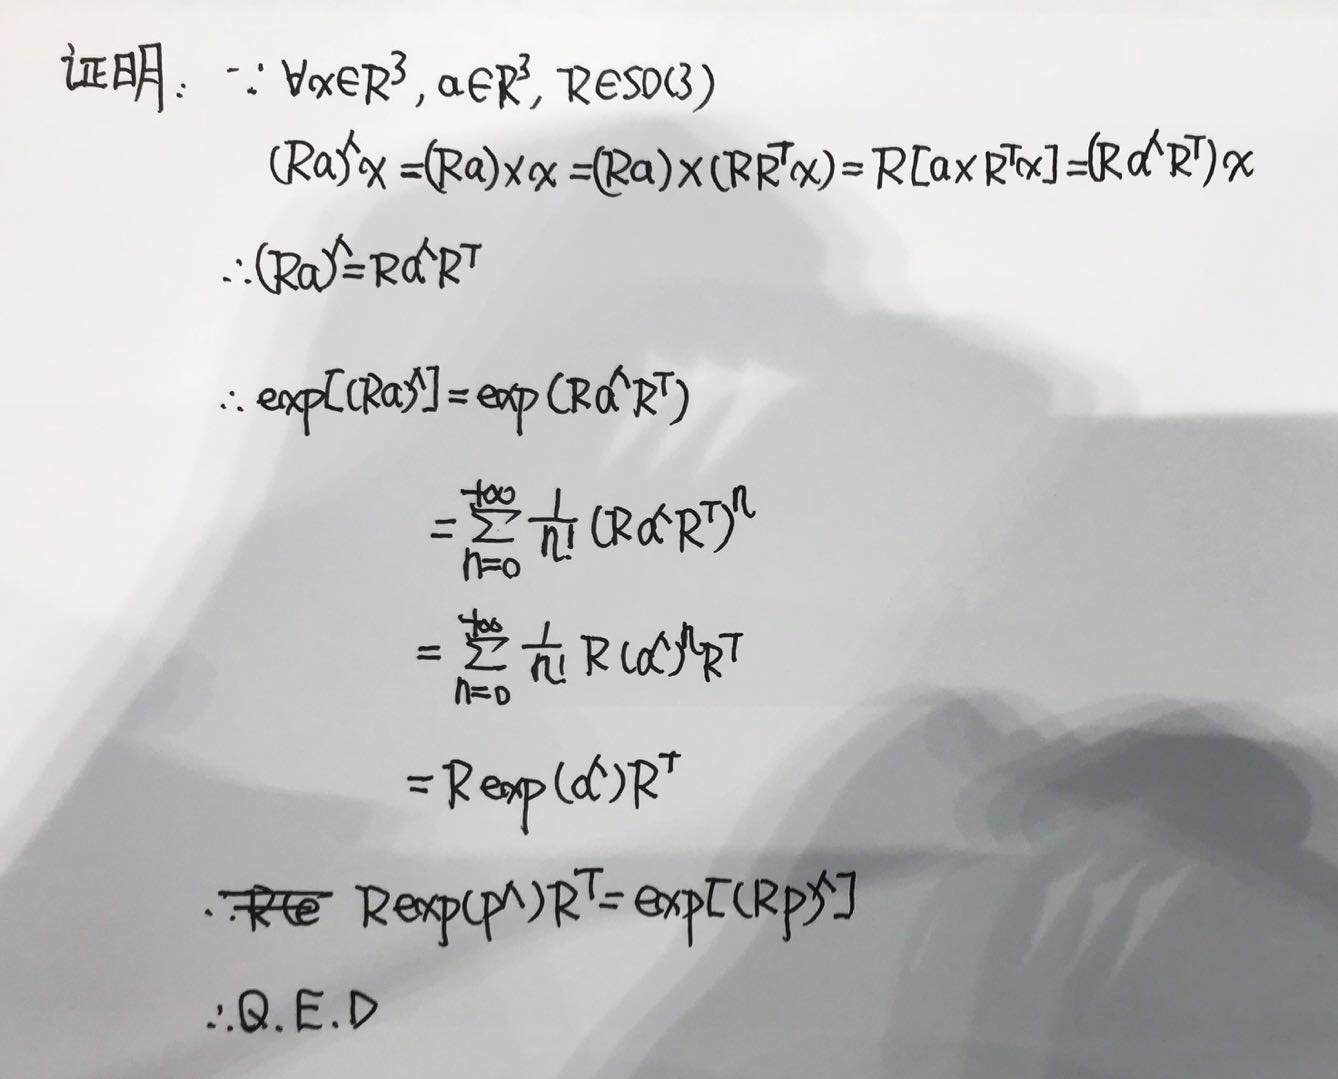 证明: ∵ ∀x∈R³, a∈R³, R∈SO(3)
(Ra)^x =(Ra)×x =(Ra)×(RRᵀx)= R[a×Rᵀx]=(Ra^Rᵀ)x
∴(Ra)^=Ra^Rᵀ
∴ exp[(Ra)^]=exp(Ra^Rᵀ)
= ∑_{n=0}^{+∞} 1/n! (Ra^Rᵀ)ⁿ
= ∑_{n=0}^{+∞} 1/n! R(a^)ⁿRᵀ
= R exp(a^)Rᵀ
∴ Rexp(p^)Rᵀ= exp[(Rp)^]
∴Q.E.D